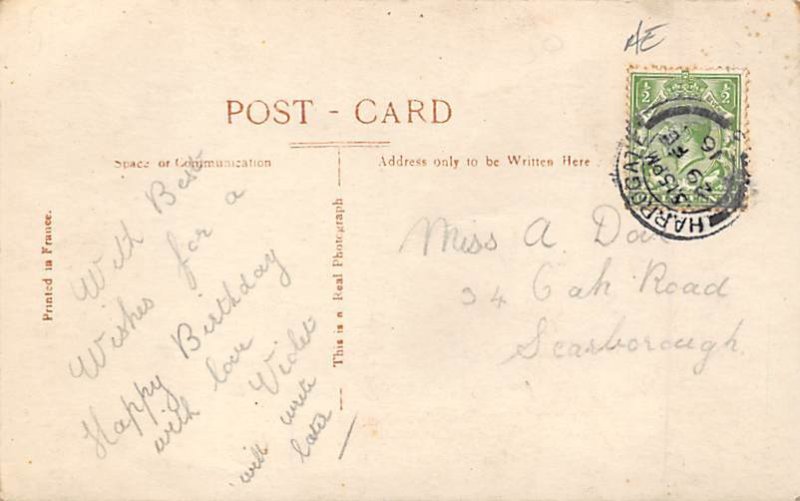 POST - CARD
Space of Communication
Address only to be Written Here
Printed in France.
This is a Real Photograph
With Best
Wishes for a
Happy Birthday
with love
Violet
will write
later
Miss A.
34 Oak Road
Scarborough
HARROGATE
5 15 PM
9
16
½ ½